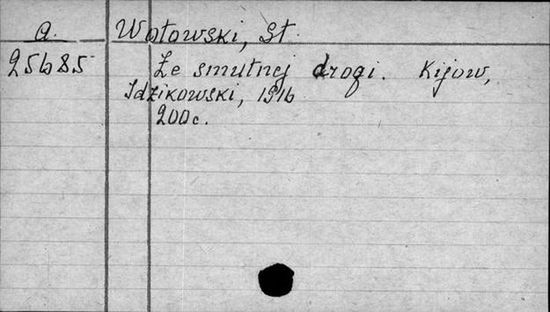 a. Wotowski, St.
25685 Ze smutnej drogi. Kijow,
Idzikowski, 1916
200 c.